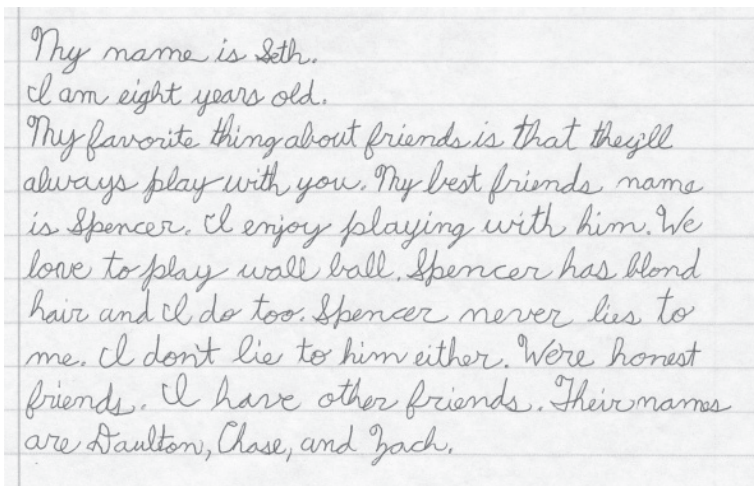 My name is Seth.
I am eight years old.
My favorite thing about friends is that they'll
always play with you. My best friends name
is Spencer. I enjoy playing with him. We
love to play wall ball. Spencer has blond
hair and I do too. Spencer never lies to
me. I don't lie to him either. We're honest
friends. I have other friends. Their names
are Daulton, Chase, and Zach.